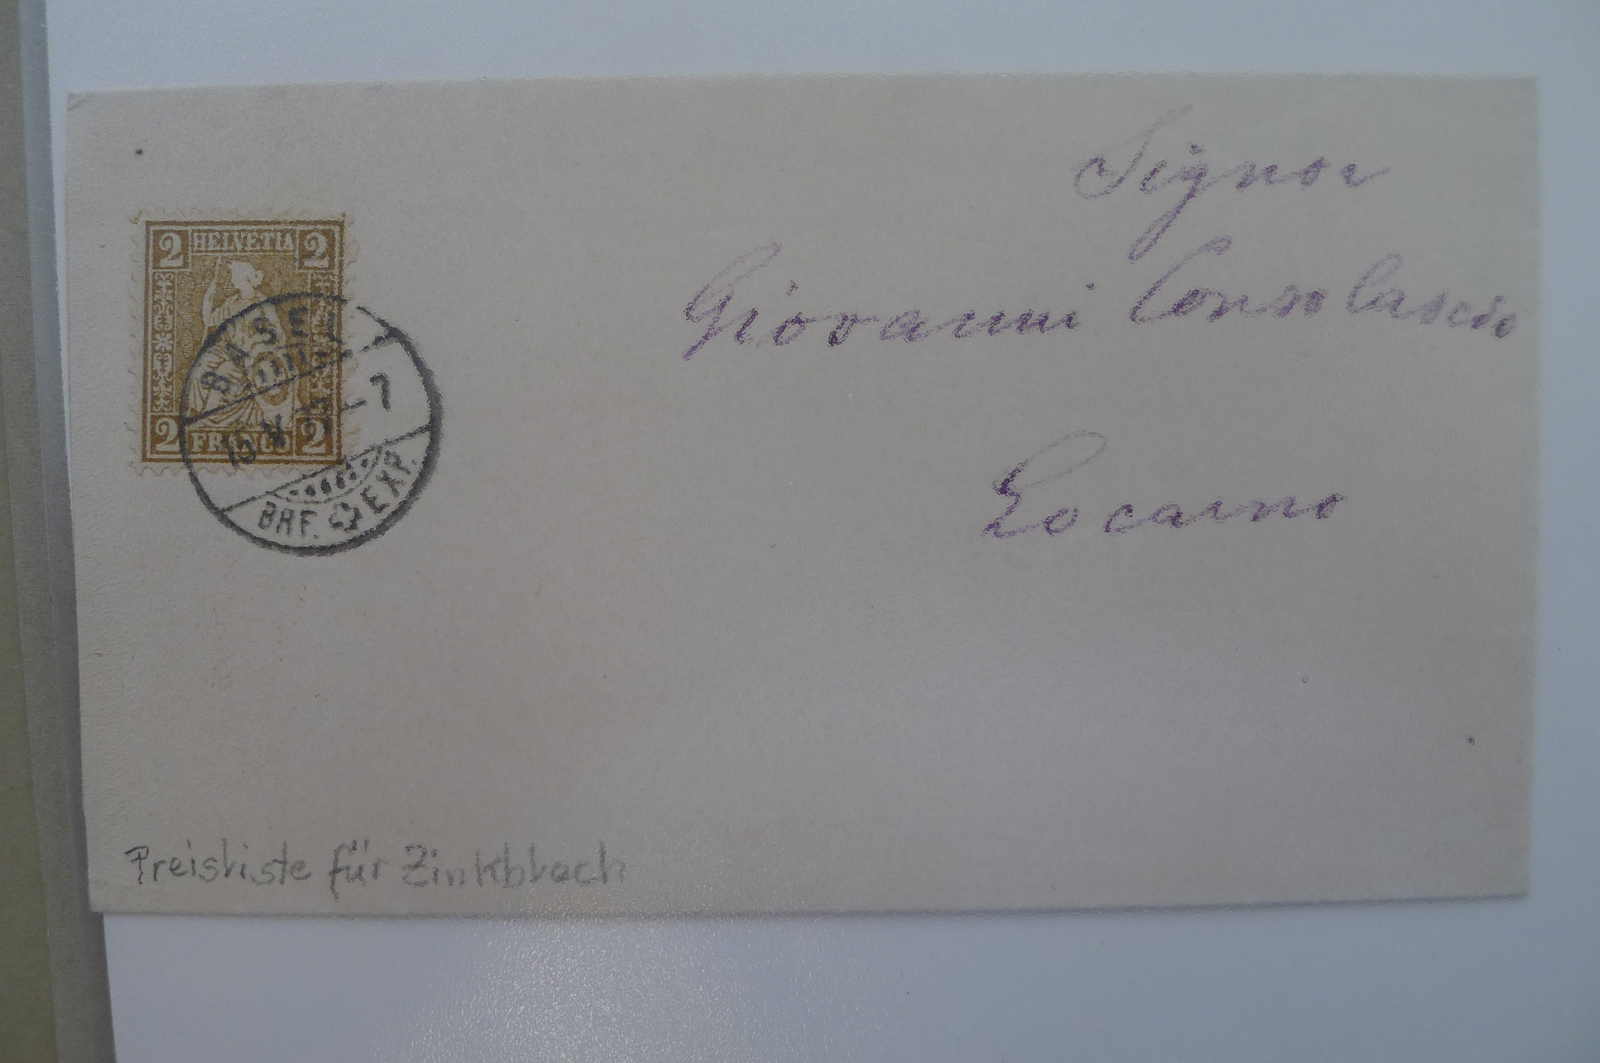 2 HELVETIA 2
2 FRANCO 2
BASEL
BRF. EXP.
Signor
Giovanni Consolascio
Locarno
Preisliste für Zinkblech